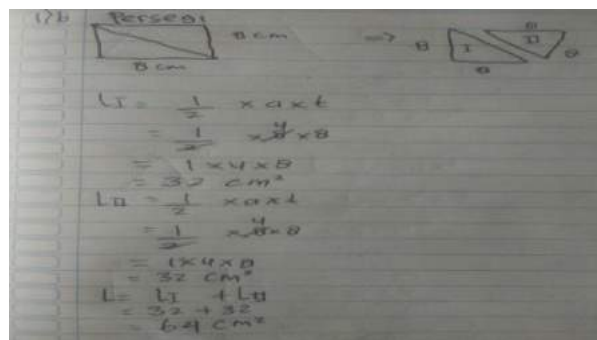 1) b Persegi
8 cm
8 cm
=> 8 I 8 8 II 8
LI = 1/2 × a × t
= 1/2 × 8 4 × 8
= 1 × 4 × 8
= 32 cm²
LII = 1/2 × a × t
= 1/2 × 8 4 × 8
= 1 × 4 × 8
= 32 cm²
L = LI + LII
= 32 + 32
= 64 cm²